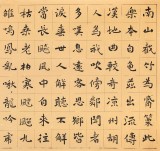 南山截竹為觱篥此
樂本自龜茲出流傳
漢地曲轉奇涼州胡
人為我吹傍鄰聞者
多歎息遠客思鄉皆
淚垂世人解聽不解
賞長飆風中自來往
枯桑老柏寒颼飀九
雛鳴鳳亂啾啾龍吟